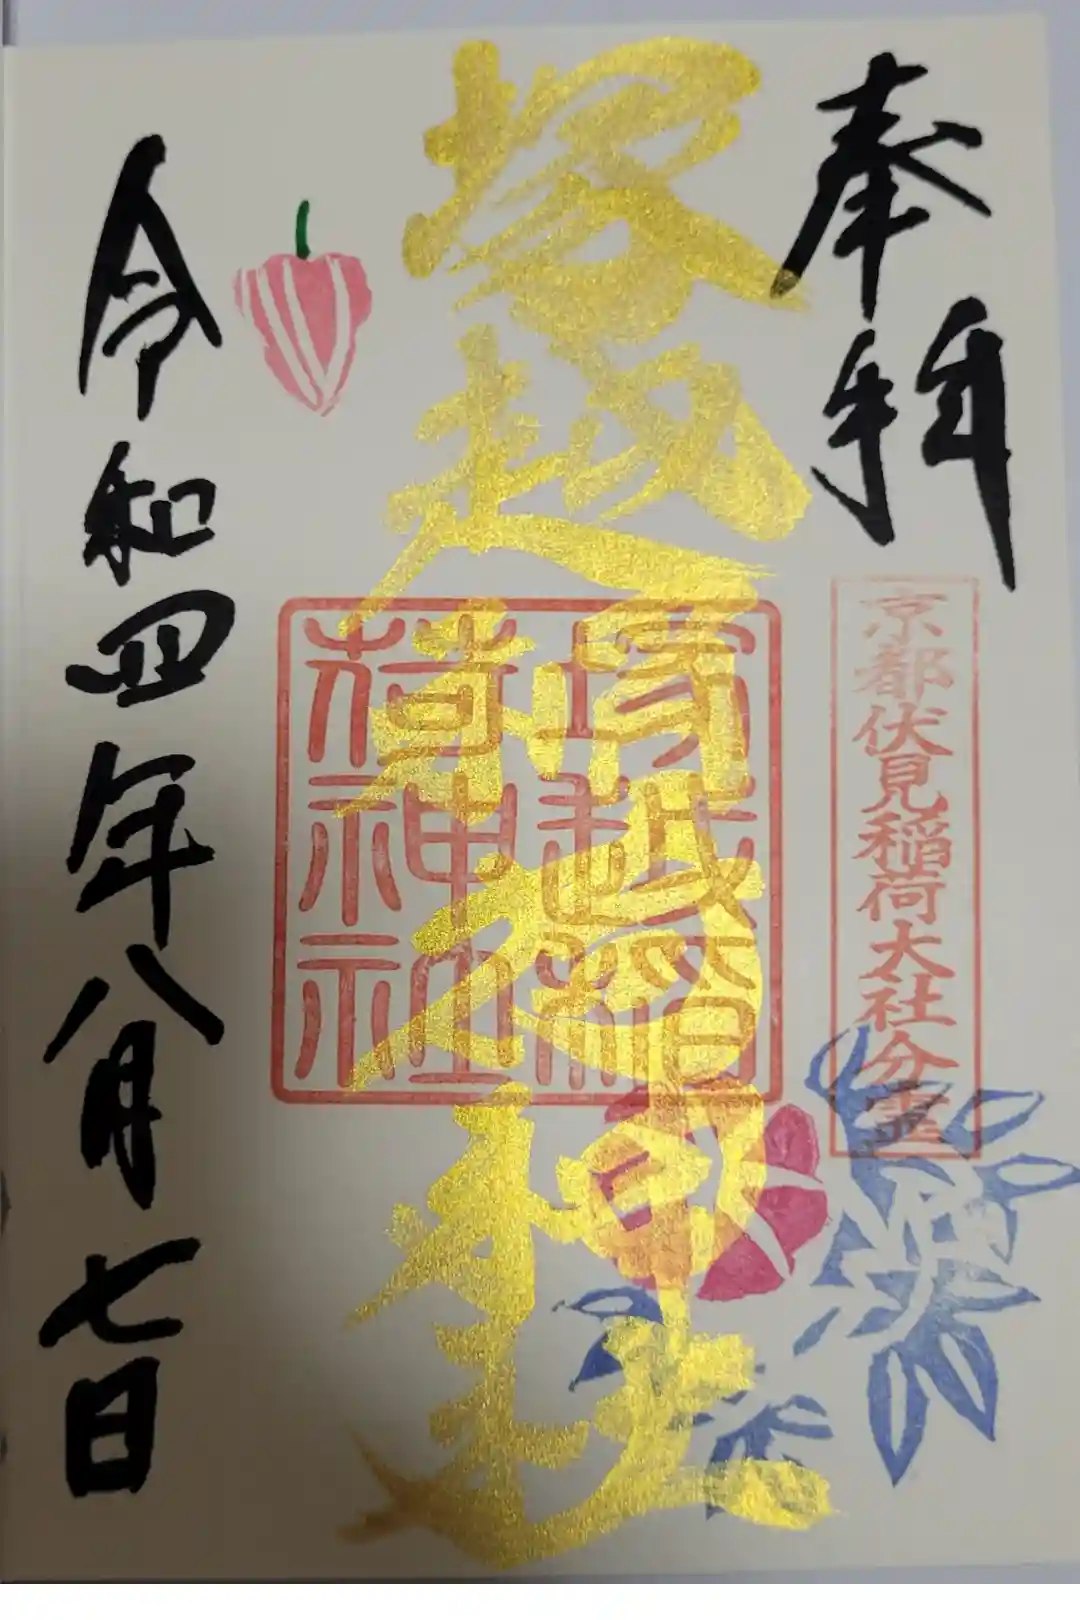 奉拝
京都伏見稲荷大社分霊
塚越稲荷神社
塚越稲
荷神社
令和四年八月七日